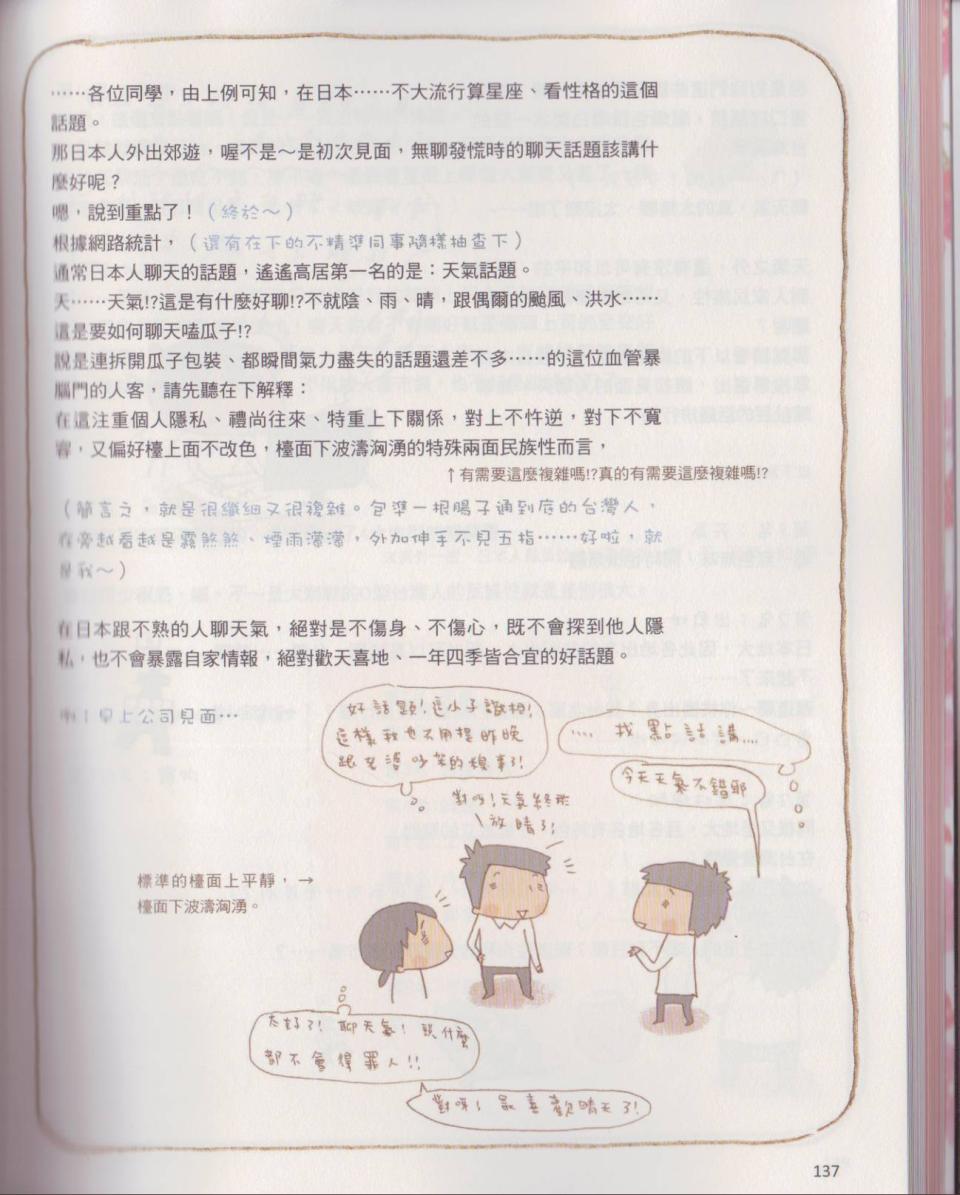 ……各位同學，由上例可知，在日本……不大流行算星座、看性格的這個
話題。
那日本人外出郊遊，喔不是～是初次見面，無聊發慌時的聊天話題該講什
麼好呢？
嗯，說到重點了！（終於～）
根據網路統計，（還有在下的不精準同事隨樣抽查下）
通常日本人聊天的話題，遙遙高居第一名的是：天氣話題。
天……天氣!?這是有什麼好聊!?不就陰、雨、晴，跟偶爾的颱風、洪水……
這是要如何聊天嗑瓜子!?
說是連拆開瓜子包裝、都瞬間氣力盡失的話題還差不多……的這位血管暴
腦門的人客，請先聽在下解釋：
在這注重個人隱私、禮尚往來、特重上下關係，對上不忤逆，對下不寬
容，又偏好檯上面不改色，檯面下波濤洶湧的特殊兩面民族性而言，
↑有需要這麼複雜嗎!?真的有需要這麼複雜嗎!?
（簡言之，就是很纖細又很複雜。包準一根腸子通到底的台灣人，
在旁越看越是霧煞煞、煙雨濛濛，外加伸手不見五指……好啦，就
是我～）
在日本跟不熟的人聊天氣，絕對是不傷身、不傷心，既不會探到他人隱
私，也不會暴露自家情報，絕對歡天喜地、一年四季皆合宜的好話題。
例！早上公司見面…
好話題！這小子識相！
這樣我也不用提昨晚
跟老婆吵架的糗事了！
…. 找點話講….
今天天氣不錯耶
對呀！天氣終於
放晴了！
標準的檯面上平靜，→
檯面下波濤洶湧。
太好了！聊天氣！說什麼
都不會得罪人!!
對呀！最喜歡晴天了！
137